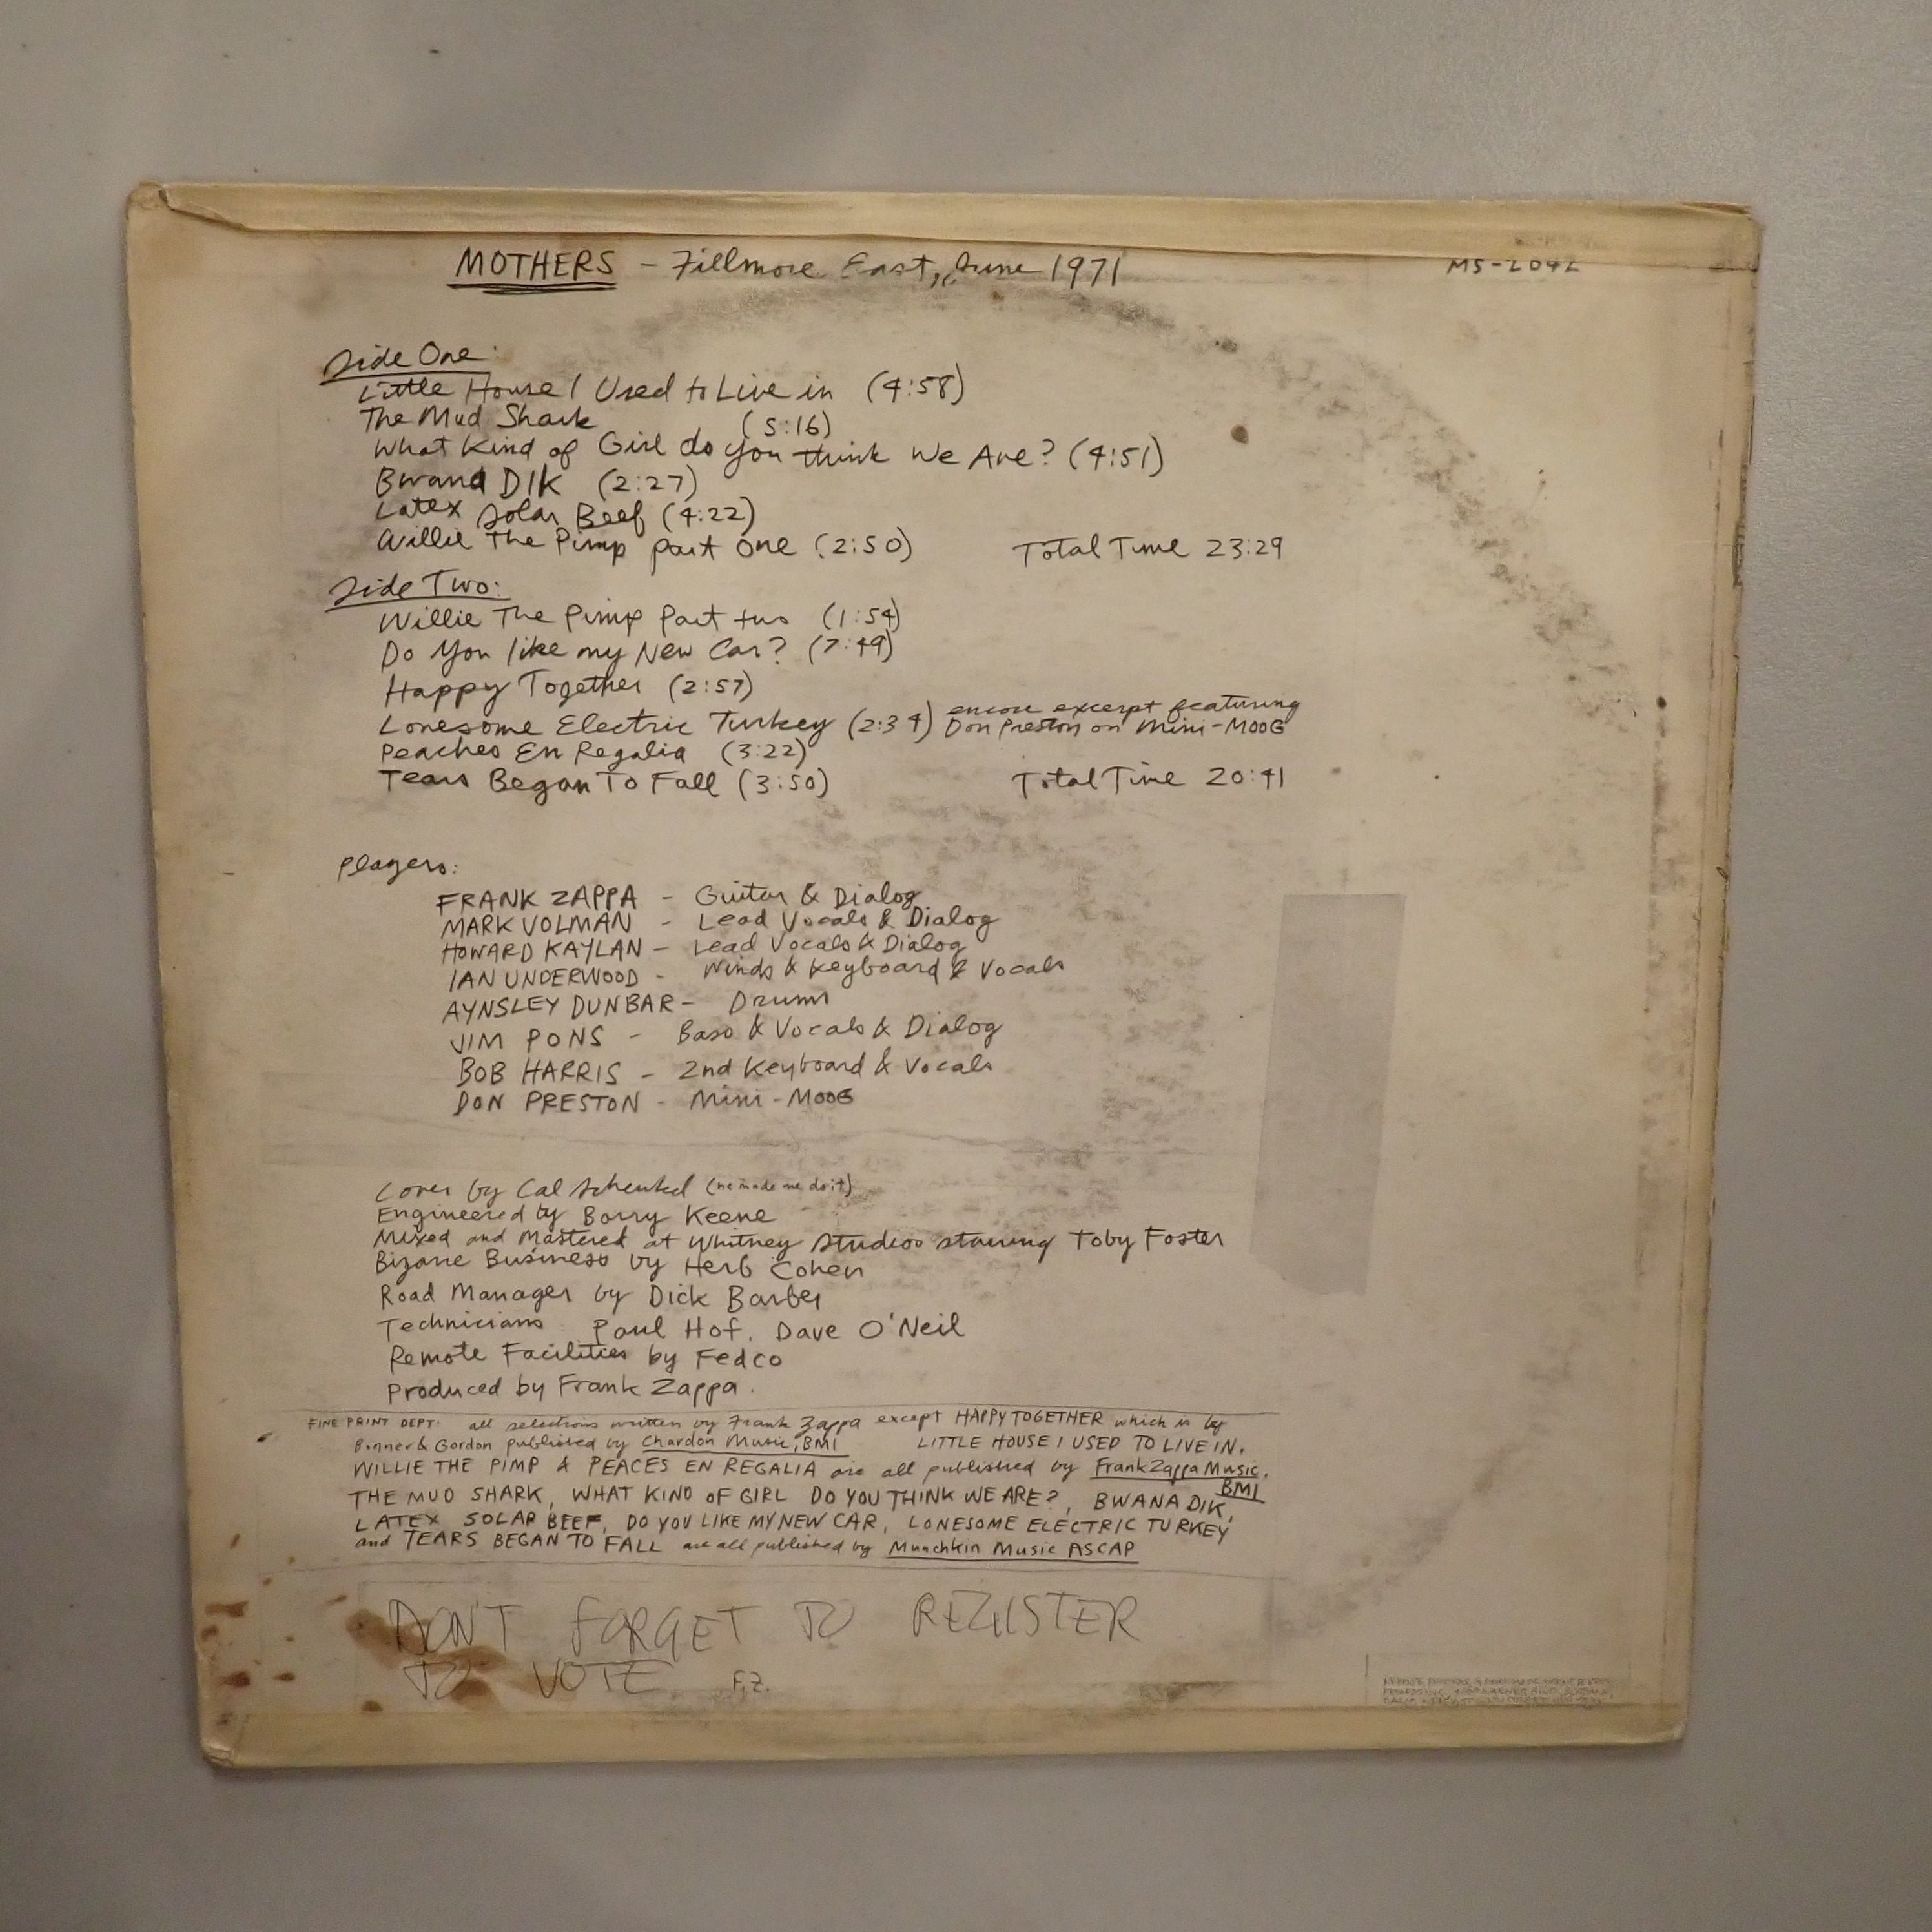 MOTHERS - Fillmore East, June 1971
MS-2042
Side One:
Little House I Used to Live in (4:58)
The Mud Shark (5:16)
What Kind of Girl do you think We Are? (4:51)
Bwana DIK (2:27)
Latex Solar Beef (4:22)
Willie The Pimp part One (2:50) Total Time 23:29
Side Two:
Willie The Pimp Part two (1:54)
Do You like my New Car? (7:49)
Happy Together (2:57)
Lonesome Electric Turkey (2:34) encore excerpt featuring
Don Preston on Mini-MOOG
Peaches En Regalia (3:22)
Tears Began To Fall (3:50) Total Time 20:41
Players:
FRANK ZAPPA - Guitar & Dialog
MARK VOLMAN - Lead Vocals & Dialog
HOWARD KAYLAN - Lead Vocals & Dialog
IAN UNDERWOOD - Winds & Keyboard & Vocals
AYNSLEY DUNBAR - Drums
JIM PONS - Bass & Vocals & Dialog
BOB HARRIS - 2nd Keyboard & Vocals
DON PRESTON - Mini-MOOG
Cover by Cal Schenkel (he made me do it)
Engineered by Barry Keene
Mixed and Mastered at Whitney Studios starring Toby Foster
Bizarre Business by Herb Cohen
Road Manager by Dick Barber
Technicians: Paul Hof, Dave O'Neil
Remote Facilities by Fedco
Produced by Frank Zappa.
FINE PRINT DEPT: all selections written by Frank Zappa except HAPPY TOGETHER which is by
Bonner & Gordon published by Chardon Music, BMI LITTLE HOUSE I USED TO LIVE IN,
WILLIE THE PIMP & PEACES EN REGALIA are all published by Frank Zappa Music,
BMI
THE MUD SHARK, WHAT KIND OF GIRL DO YOU THINK WE ARE?, BWANA DIK,
LATEX SOLAR BEEF, DO YOU LIKE MY NEW CAR, LONESOME ELECTRIC TURKEY
and TEARS BEGAN TO FALL are all published by Munchkin Music ASCAP
DON'T FORGET TO REGISTER
TO VOTE F.Z.